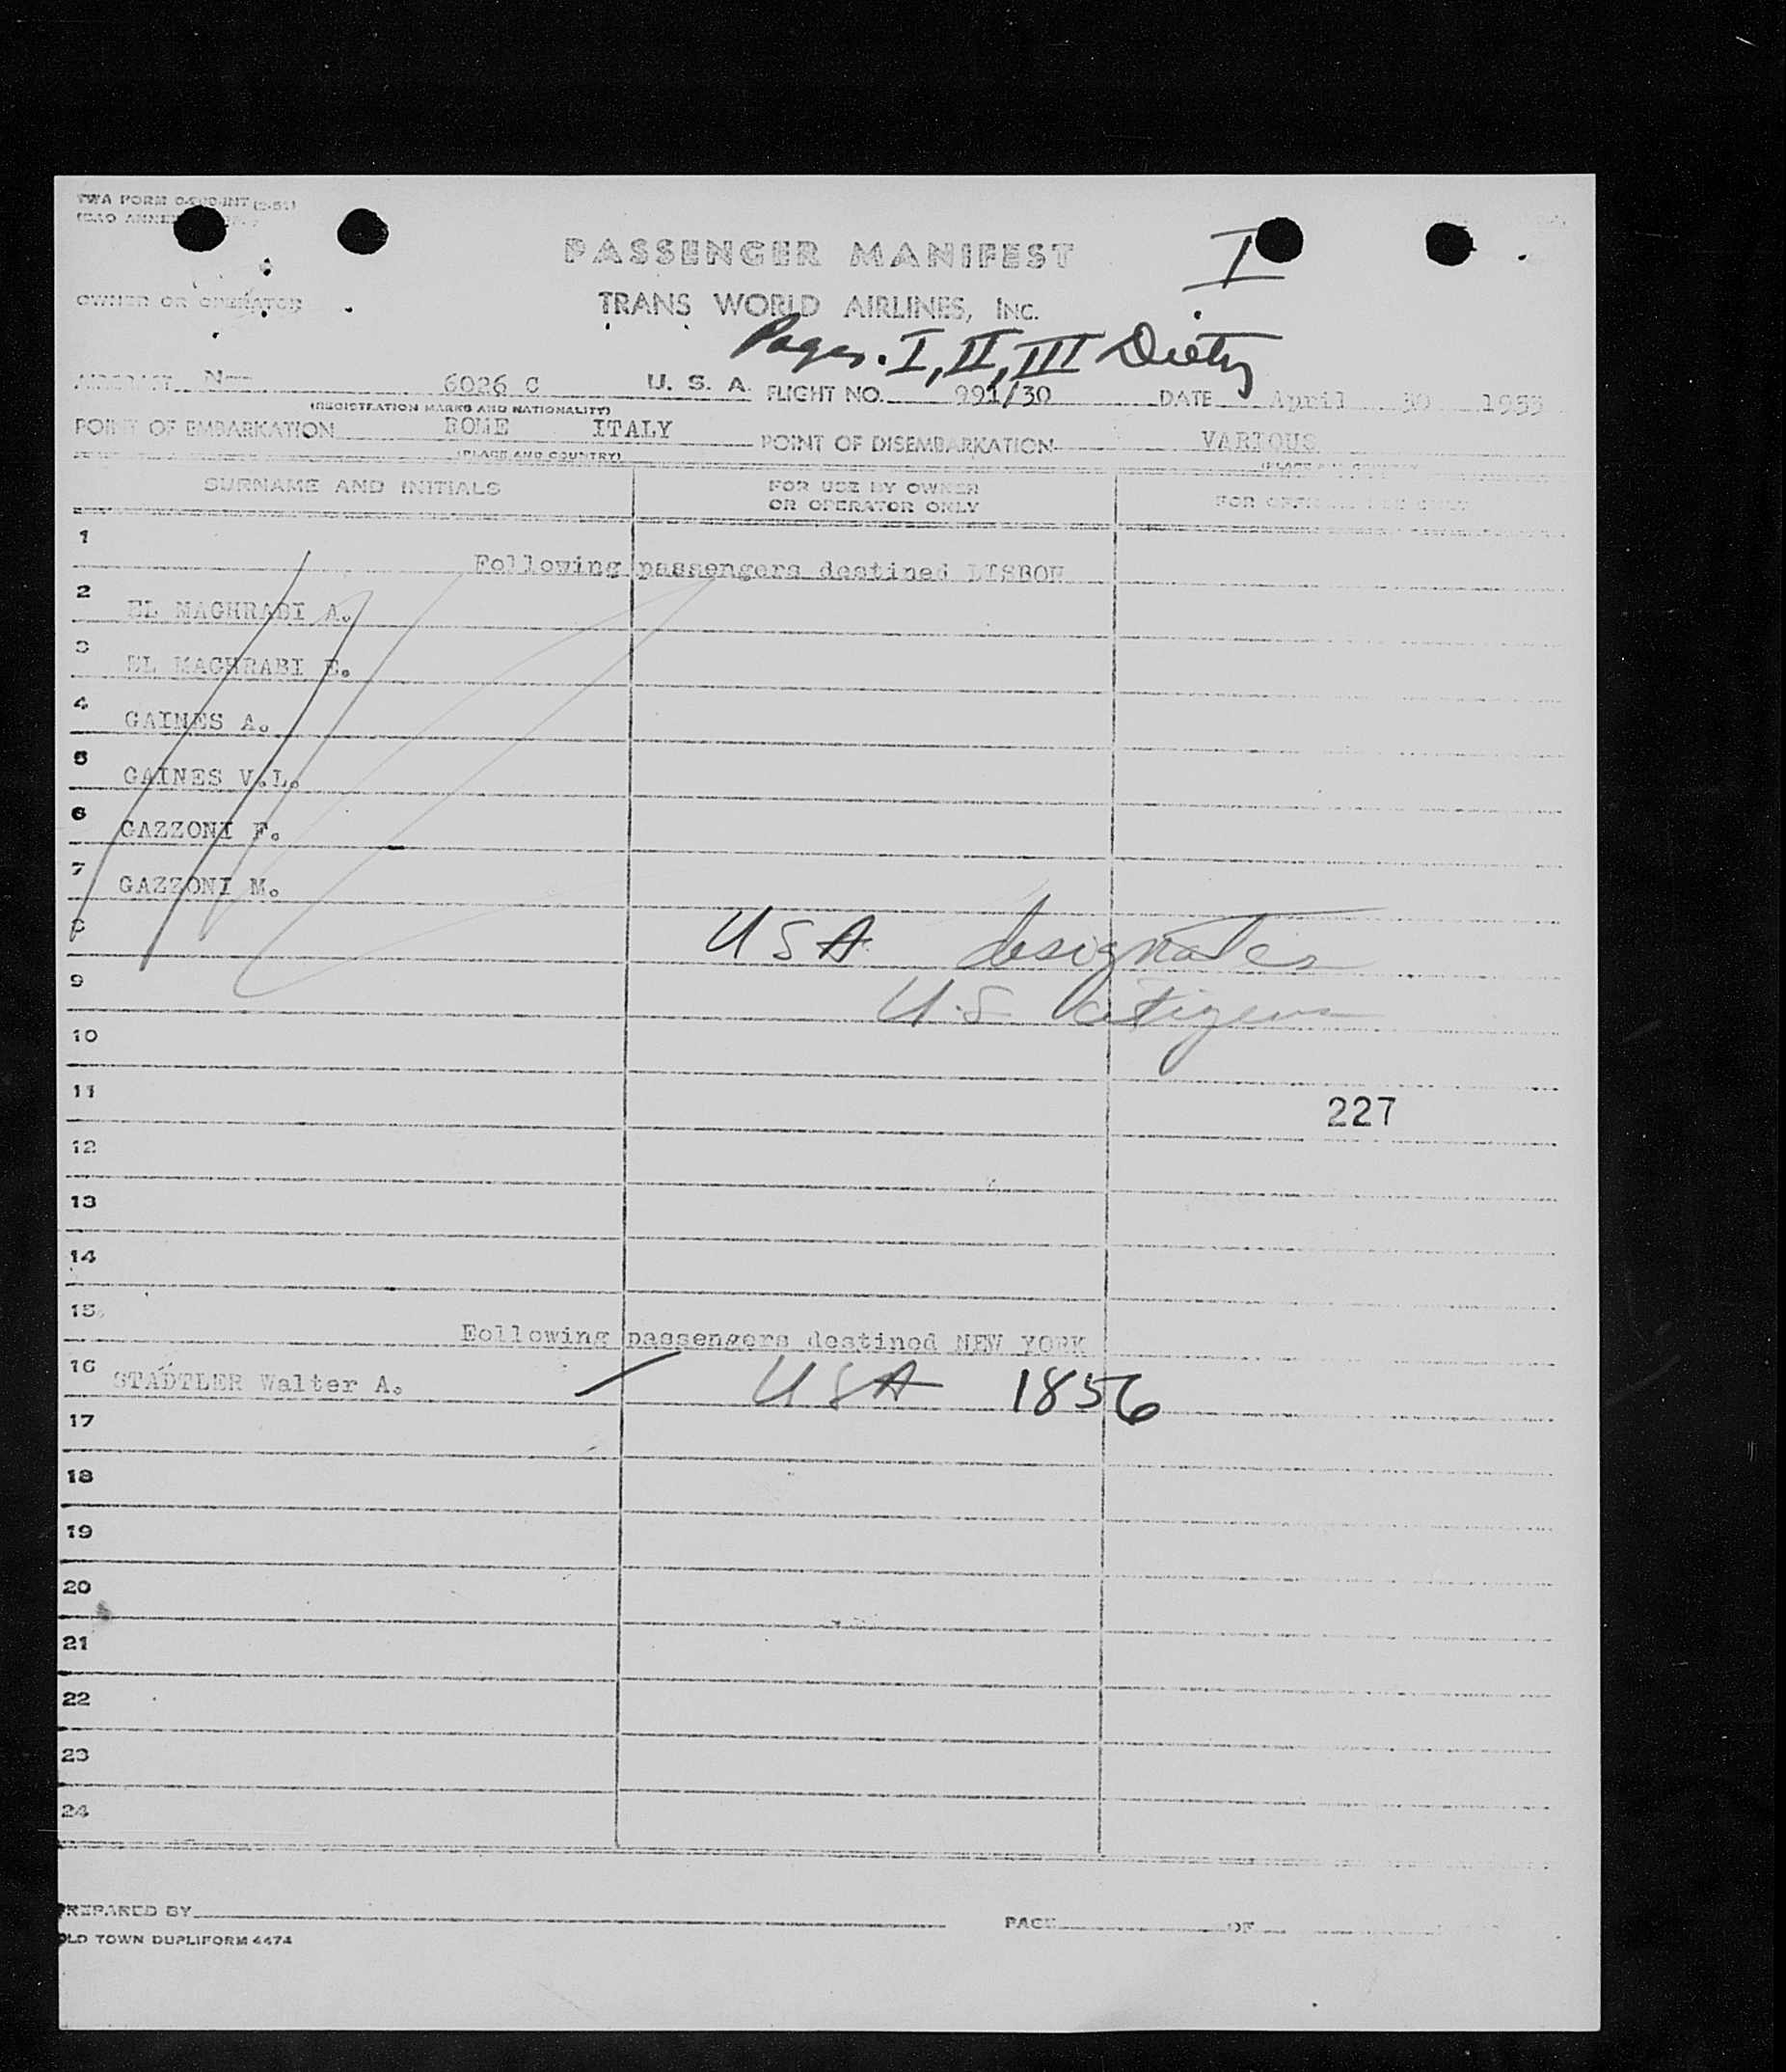 TWA FORM
I
PASSENGER MANIFEST
OWNER OR OPERATOR
TRANS WORLD AIRLINES, INC.
Pages. I, II, III Dietz
AIRCRAFT N 6026 C U. S. A. FLIGHT NO. 991/30 DATE April 30 1953
(REGISTRATION MARKS AND NATIONALITY)
POINT OF EMBARKATION ROME ITALY POINT OF DISEMBARKATION VARIOUS
(PLACE AND COUNTRY) (PLACE AND COUNTRY)
SURNAME AND INITIALS FOR USE BY OWNER OR OPERATOR ONLY FOR OFFICIAL USE ONLY
1 Following passengers destined LISBON
2 EL MAGHRABI A.
3 EL MAGHRABI E.
4 GAINES A.
5 GAINES V.L.
6 GAZZONI F.
7 GAZZONI M.
8 USA designates
9 U.S citizens
10
11 227
12
13
14
15 Following passengers destined NEW YORK
16 STADTLER Walter A. USA 1856
17
18
19
20
21
22
23
24
PREPARED BY PAGE OF
OLD TOWN DUPLIFORM 4474